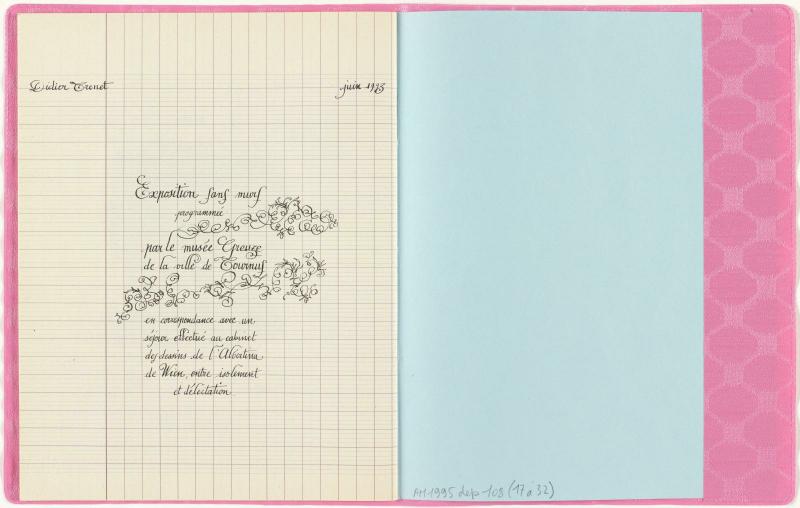 Didier Trenet
juin 1993
Exposition sans murs
programmée
par le musée Greuze
de la ville de Tournus
en correspondance avec un
séjour effectué au cabinet
des dessins de l'Albertina
de Wien, entre isolement
et délectation
AM 1995 dép 108 (17 à 32)